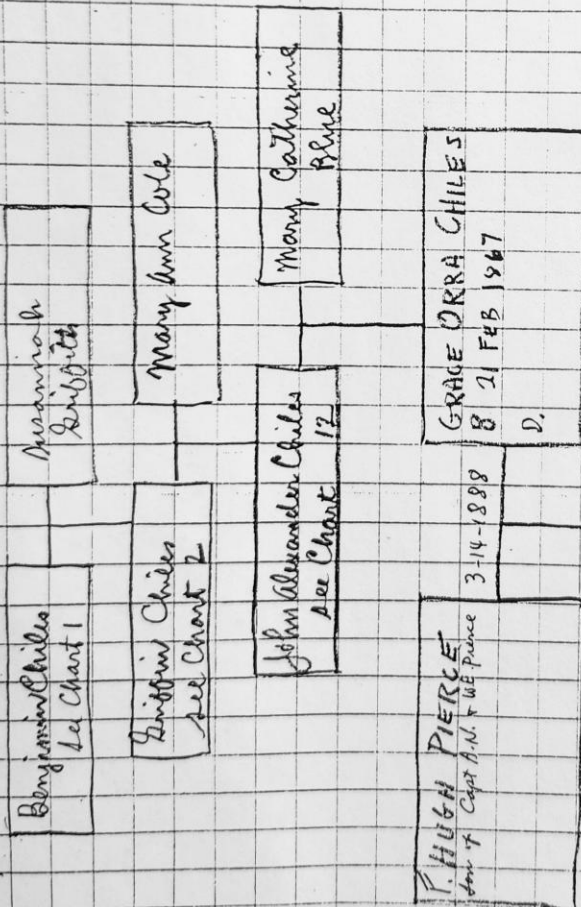 Benjamin Chiles
see Chart 1
Susannah
Griffith
Griffin Chiles
see Chart 2
Mary Ann Cole
John Alexander Chiles
see Chart 12
Mary Catherine
Blue
P. HUGH PIERCE
son of Capt A.N. & W.E. Pierce
3-14-1888
GRACE ORRA CHILES
B 21 FEB 1867
D.